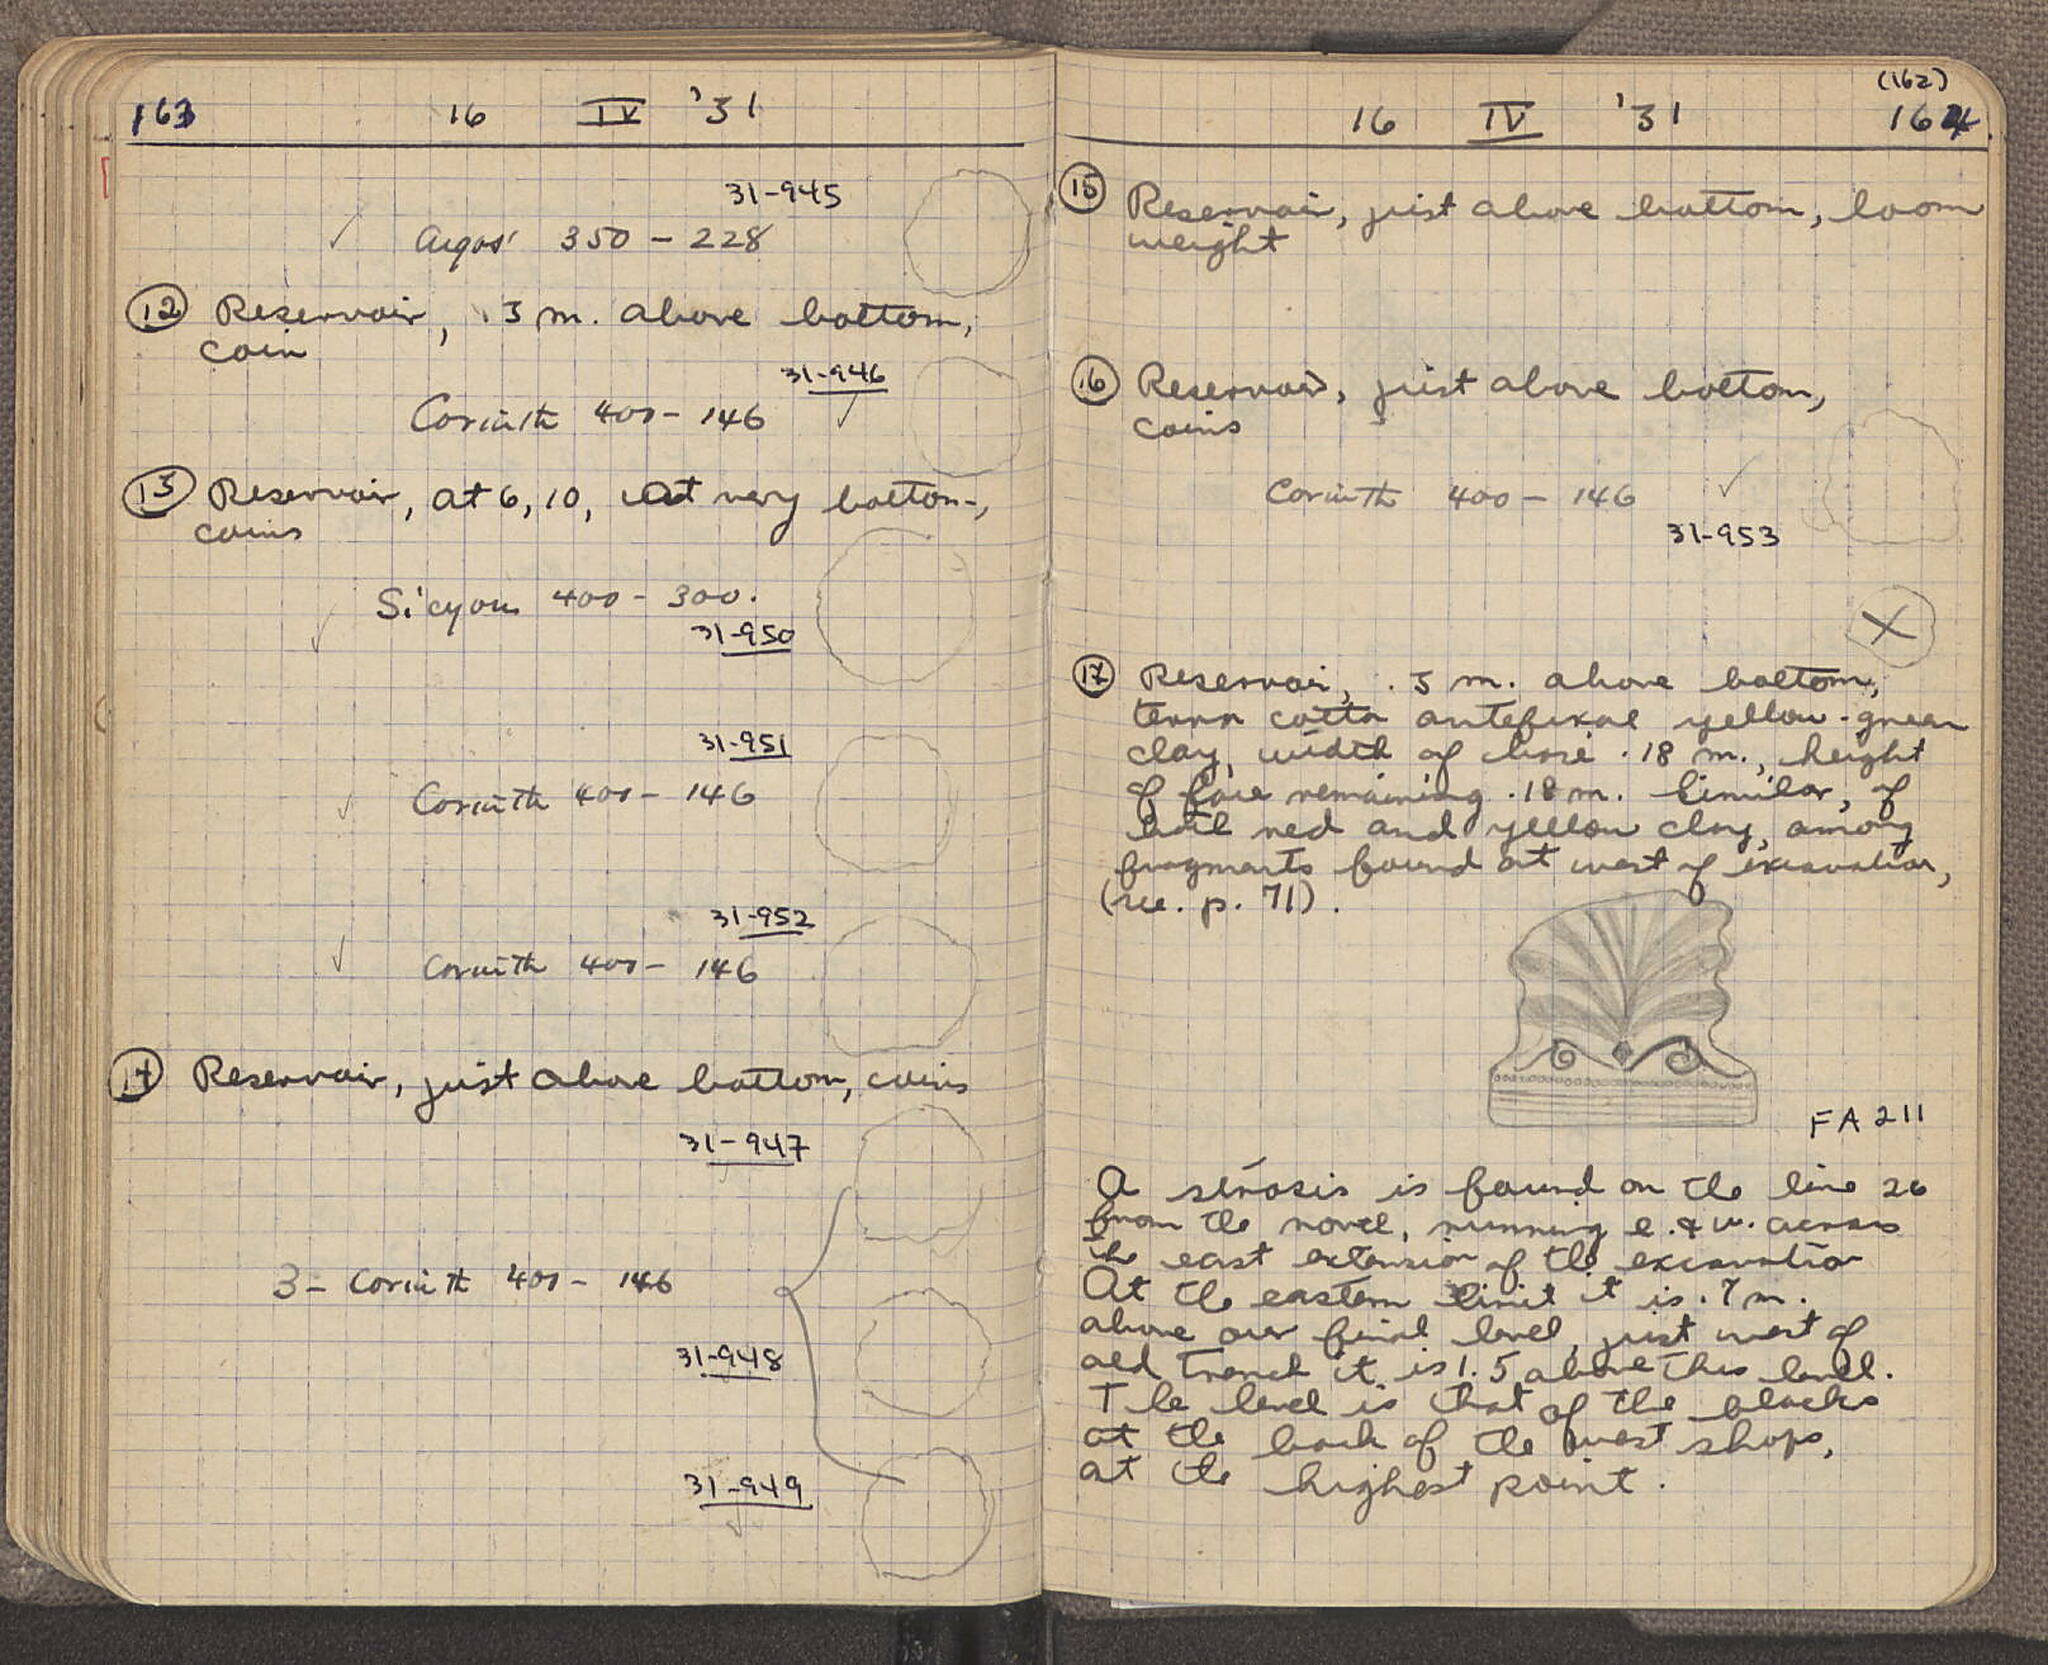 163 16 IV '31
31-945
Argos 350 - 228
12 Reservoir, .3 m. above bottom,
coin
31-946
Corinth 400 - 146
13 Reservoir, at 6, 10, at very bottom,
coins
Sicyon 400 - 300.
31-950
31-951
Corinth 400 - 146
31-952
Corinth 400 - 146
14 Reservoir, just above bottom, coins
31-947
3 - Corinth 400 - 146
31-948
31-949
(162)
16 IV '31 164
15 Reservoir, just above bottom, loom
weight
16 Reservoir, just above bottom,
coins
Corinth 400 - 146
31-953
17 Reservoir, .3 m. above bottom,
terra cotta antefixae yellow-green
clay, width of base .18 m., height
of face remaining .18 m. Similar, of
both red and yellow clay, among
fragments found at west of excavation,
(see. p. 71).
FA 211
A strosis is found on the line 26
from the north, running e. & w. across
the east extension of the excavation
At the eastern limit it is .7 m.
above our final level, just west of
old trench it is 1.5 above this level.
The level is that of the blocks
at the back of the west shops,
at the highest point.